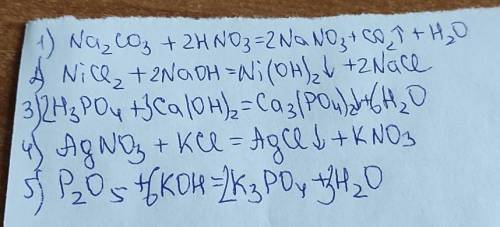 1) Na₂CO₃ + 2HNO₃ = 2NaNO₃ + CO₂↑ + H₂O
2) NiCl₂ + 2NaOH = Ni(OH)₂↓ + 2NaCl
3) 2H₃PO₄ + 3Ca(OH)₂ = Ca₃(PO₄)₂↓ + 6H₂O
4) AgNO₃ + KCl = AgCl↓ + KNO₃
5) P₂O₅ + 6KOH = 2K₃PO₄ + 3H₂O